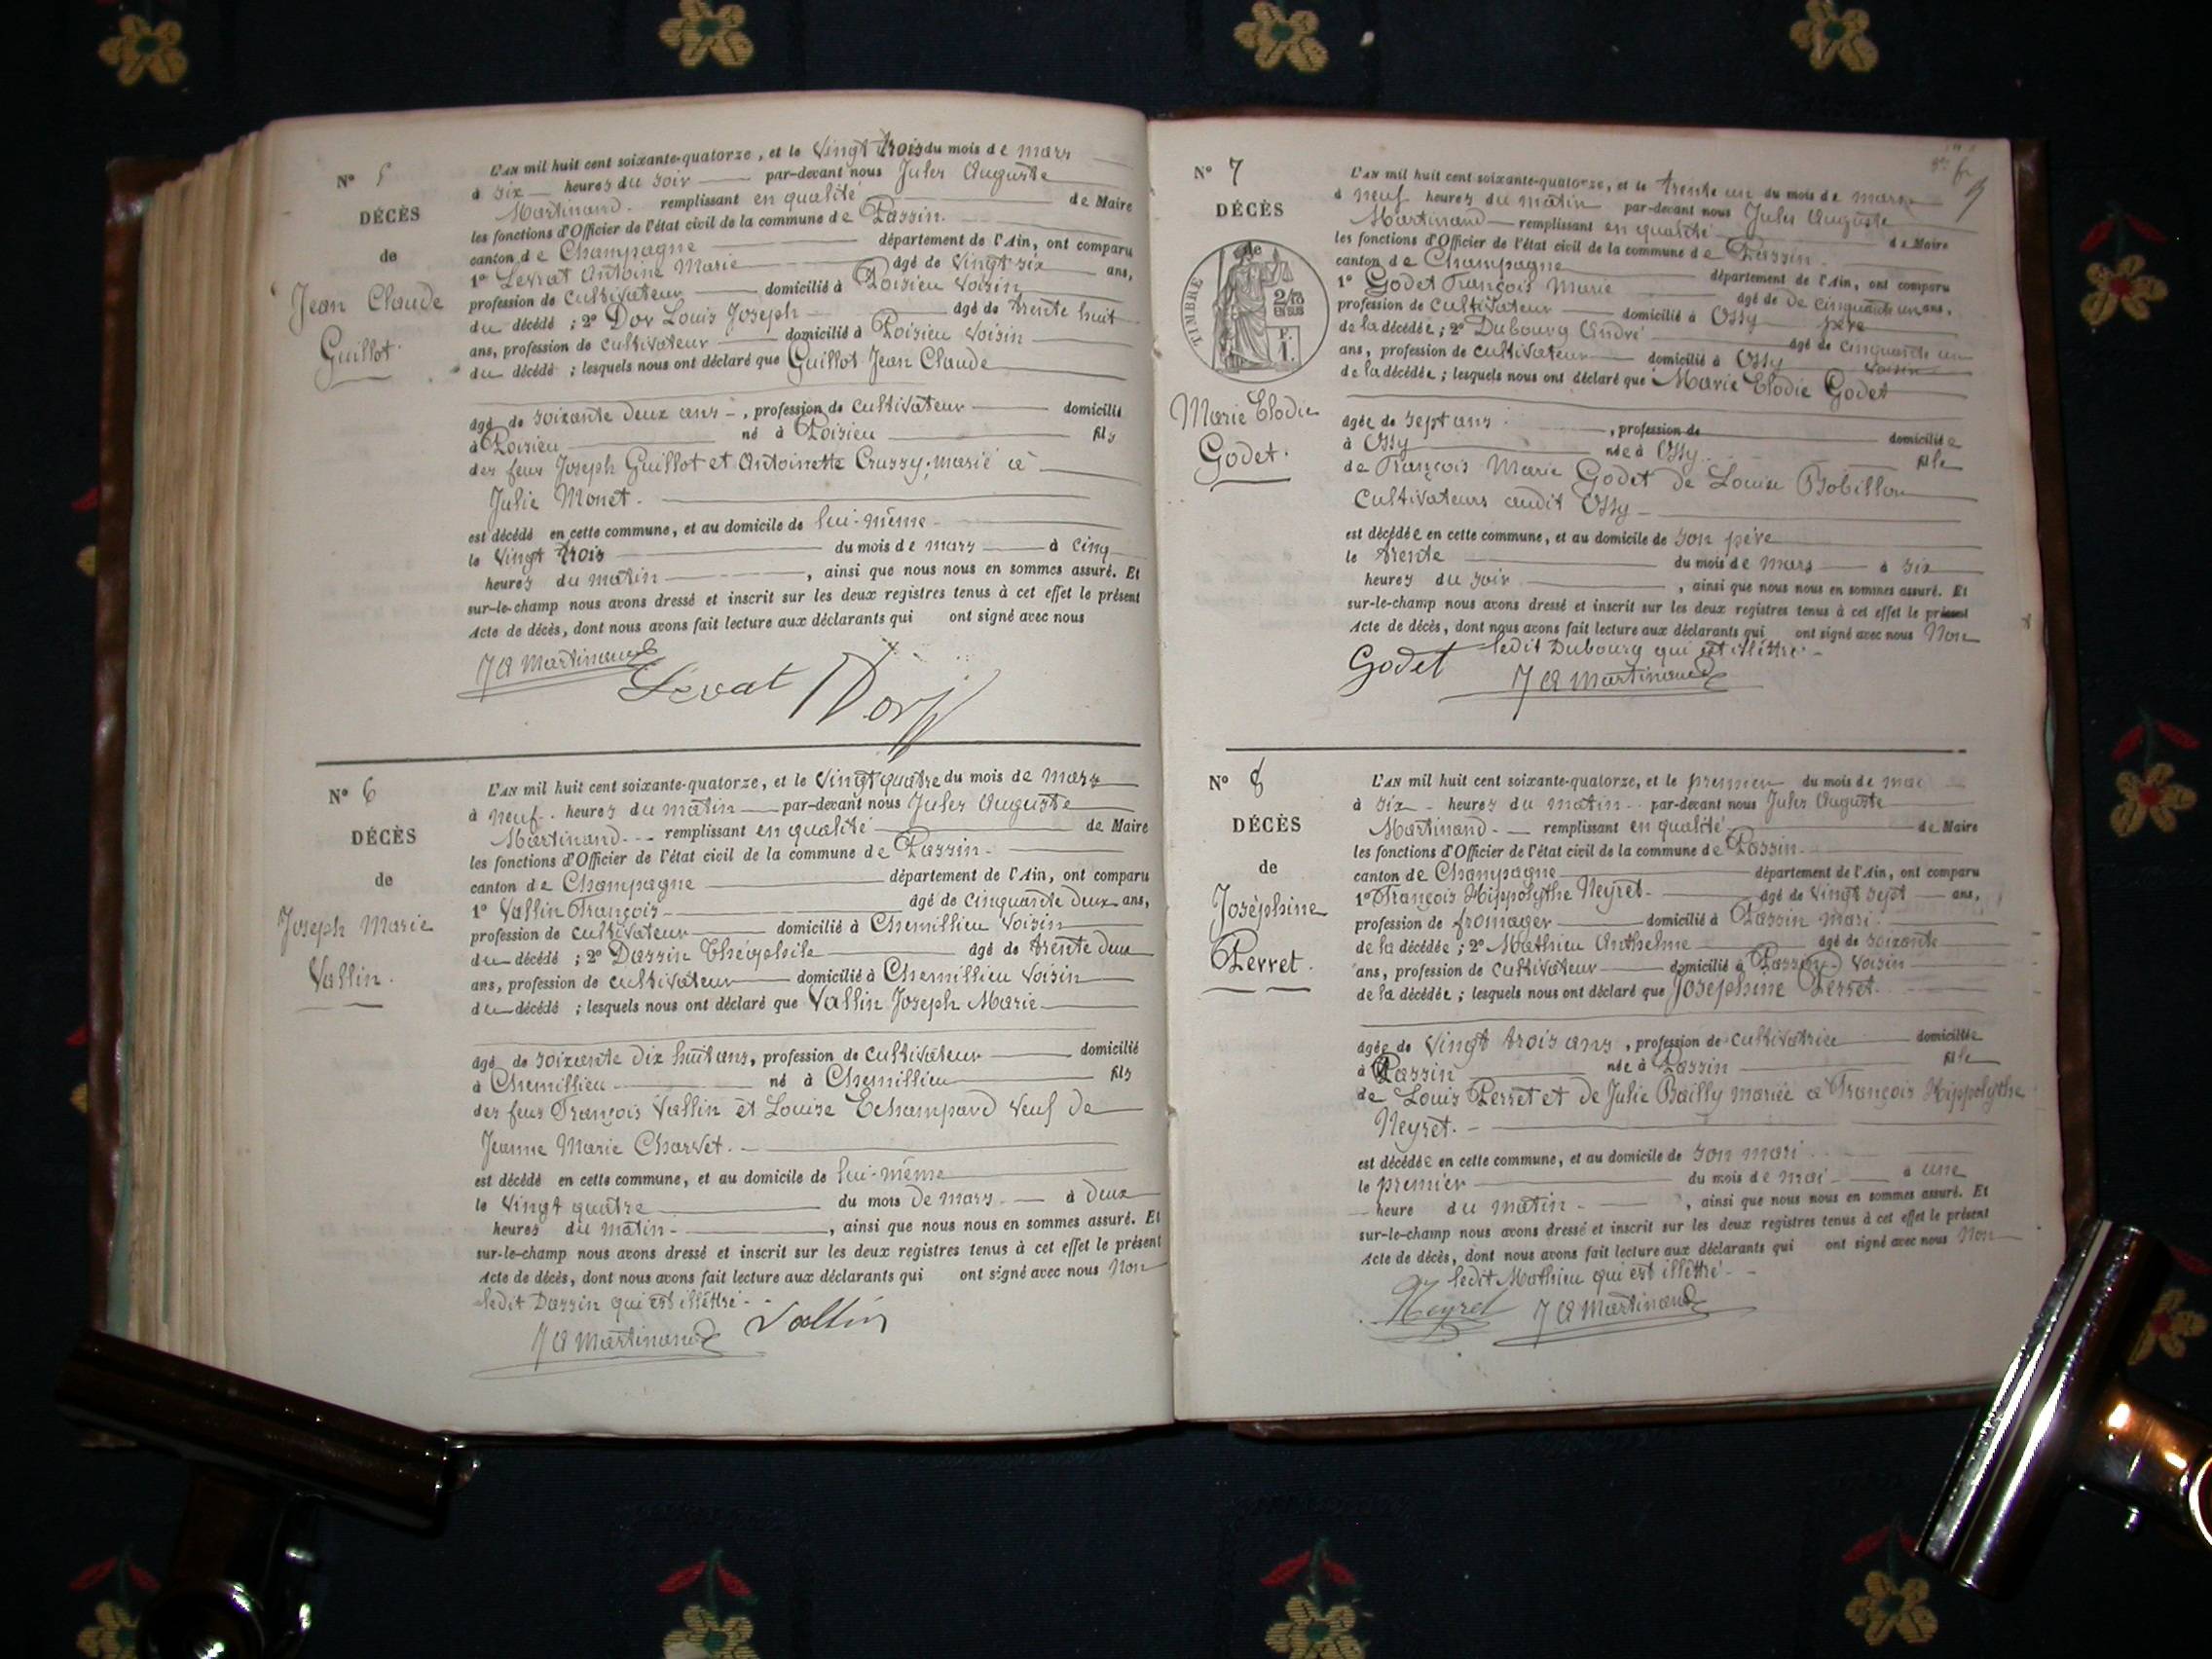 N° 5
DÉCÈS
de
Jean Claude
Guillot.
L'AN mil huit cent soixante-quatorze, et le vingt trois du mois de mars
à six heures du soir par-devant nous Jules Auguste
Martinand. remplissant en qualité de Maire
les fonctions d'Officier de l'état civil de la commune de Passin.
canton de Champagne département de l'Ain, ont comparu
1° Levrat Antoine Marie âgé de vingt six ans,
profession de cultivateur domicilié à Poisieu voisin
du décédé ; 2° Dor Louis Joseph âgé de trente huit
ans, profession de cultivateur domicilié à Poisieu voisin
du décédé ; lesquels nous ont déclaré que Guillot Jean Claude
âgé de soixante deux ans, profession de cultivateur domicilié
à Poisieu né à Poisieu fils
des feus Joseph Guillot et Antoinette Crussy, marié à
Julie Monet.
est décédé en cette commune, et au domicile de lui-même
le vingt trois du mois de mars à cinq
heures du matin, ainsi que nous nous en sommes assuré. Et
sur-le-champ nous avons dressé et inscrit sur les deux registres tenus à cet effet le présent
Acte de décès, dont nous avons fait lecture aux déclarants qui ont signé avec nous
J A Martinand Levrat Dor
N° 6
DÉCÈS
de
Joseph Marie
Vallin.
L'AN mil huit cent soixante-quatorze, et le vingt quatre du mois de mars
à neuf heures du matin par-devant nous Jules Auguste
Martinand remplissant en qualité de Maire
les fonctions d'Officier de l'état civil de la commune de Passin.
canton de Champagne département de l'Ain, ont comparu
1° Vallin François âgé de cinquante deux ans,
profession de cultivateur domicilié à Chemillieu voisin
du décédé ; 2° Dassin Théophile âgé de trente deux
ans, profession de cultivateur domicilié à Chemillieu voisin
du décédé ; lesquels nous ont déclaré que Vallin Joseph Marie
âgé de soixante dix huit ans, profession de cultivateur domicilié
à Chemillieu né à Chemillieu fils
des feus François Vallin et Louise Echampard veuf de
Jeanne Marie Charvet.
est décédé en cette commune, et au domicile de lui-même
le vingt quatre du mois de mars à deux
heures du matin, ainsi que nous nous en sommes assuré. Et
sur-le-champ nous avons dressé et inscrit sur les deux registres tenus à cet effet le présent
Acte de décès, dont nous avons fait lecture aux déclarants qui ont signé avec nous Non
ledit Dassin qui est illétré.
J A Martinand Vallin
N° 7
DÉCÈS
de
TIMBRE
2/10
EN SUS
F.
1.
Marie Elodie
Godet.
L'AN mil huit cent soixante-quatorze, et le trente un du mois de mars
à neuf heures du matin par-devant nous Jules Auguste
Martinand remplissant en qualité de Maire
les fonctions d'Officier de l'état civil de la commune de Passin.
canton de Champagne département de l'Ain, ont comparu
1° Godet François Marie âgé de de cinquante un ans,
profession de cultivateur domicilié à Ossy père
de la décédée ; 2° Dubourg André âgé de cinquante un
ans, profession de cultivateur domicilié à Ossy voisin
de la décédée ; lesquels nous ont déclaré que Marie Elodie Godet
âgée de sept ans, profession de domiciliée
à Ossy née à Ossy fille
de François Marie Godet de Louise Bobillon
cultivateurs audit Ossy
est décédée en cette commune, et au domicile de son père
le trente du mois de mars à six
heures du soir, ainsi que nous nous en sommes assuré. Et
sur-le-champ nous avons dressé et inscrit sur les deux registres tenus à cet effet le présent
Acte de décès, dont nous avons fait lecture aux déclarants qui ont signé avec nous Non
ledit Dubourg qui est illétré.
Godet J A Martinand
N° 8
DÉCÈS
de
Joséphine
Perret.
L'AN mil huit cent soixante-quatorze, et le premier du mois de mai
à six heures du matin par-devant nous Jules Auguste
Martinand remplissant en qualité de Maire
les fonctions d'Officier de l'état civil de la commune de Passin.
canton de Champagne département de l'Ain, ont comparu
1° François Hippolythe Neyret. âgé de vingt sept ans,
profession de fromager domicilié à Passin mari
de la décédée ; 2° Mathieu Anthelme âgé de soixante
ans, profession de cultivateur domicilié à Passin voisin
de la décédée ; lesquels nous ont déclaré que Joséphine Perret.
âgée de vingt trois ans, profession de cultivatrice domiciliée
à Passin née à Passin fille
de Louis Perret et de Julie Bailly mariée à François Hippolythe
Neyret.
est décédée en cette commune, et au domicile de son mari
le premier du mois de mai à une
heure du matin, ainsi que nous nous en sommes assuré. Et
sur-le-champ nous avons dressé et inscrit sur les deux registres tenus à cet effet le présent
Acte de décès, dont nous avons fait lecture aux déclarants qui ont signé avec nous Non
ledit Mathieu qui est illétré.
Neyret J A Martinand